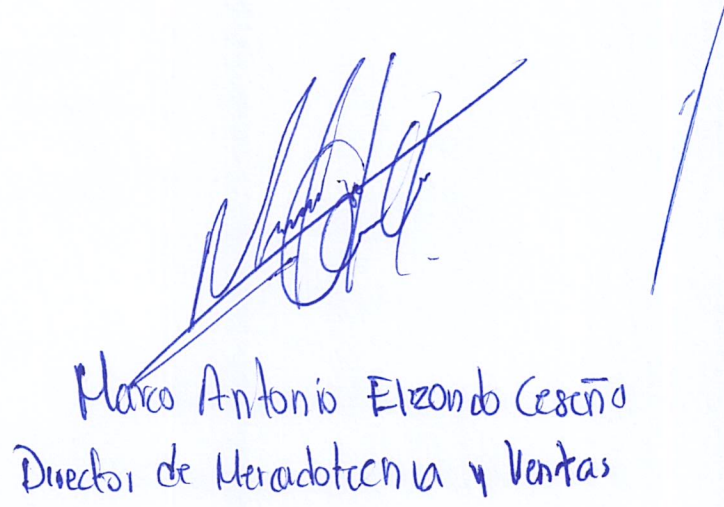 Marco Antonio Elizondo Ceseño
Director de Mercadotecnia y Ventas